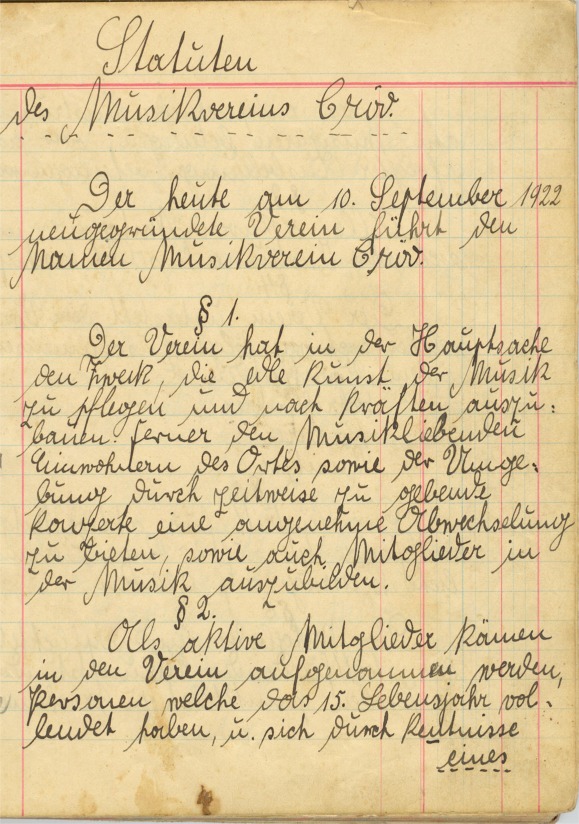 Statuten
des Musikvereins Cröv.
Der heute am 10. September 1922
neugegründete Verein führt den
Namen Musikverein Cröv.
§ 1.
Der Verein hat in der Hauptsache
den Zweck, die edle Kunst der Musik
zu pflegen und nach Kräften auszu=
bauen. Ferner den Musikliebenden
Einwohnern des Ortes sowie der Umge=
bung durch zeitweise zu gebende
Konzerte eine angenehme Abwechselung
zu bieten, sowie auch Mitglieder in
der Musik auszubilden.
§ 2.
Als aktive Mitglieder können
in den Verein aufgenommen werden,
Personen welche das 15. Lebensjahr vol-
lendet haben, u. sich durch Kentnisse
eines